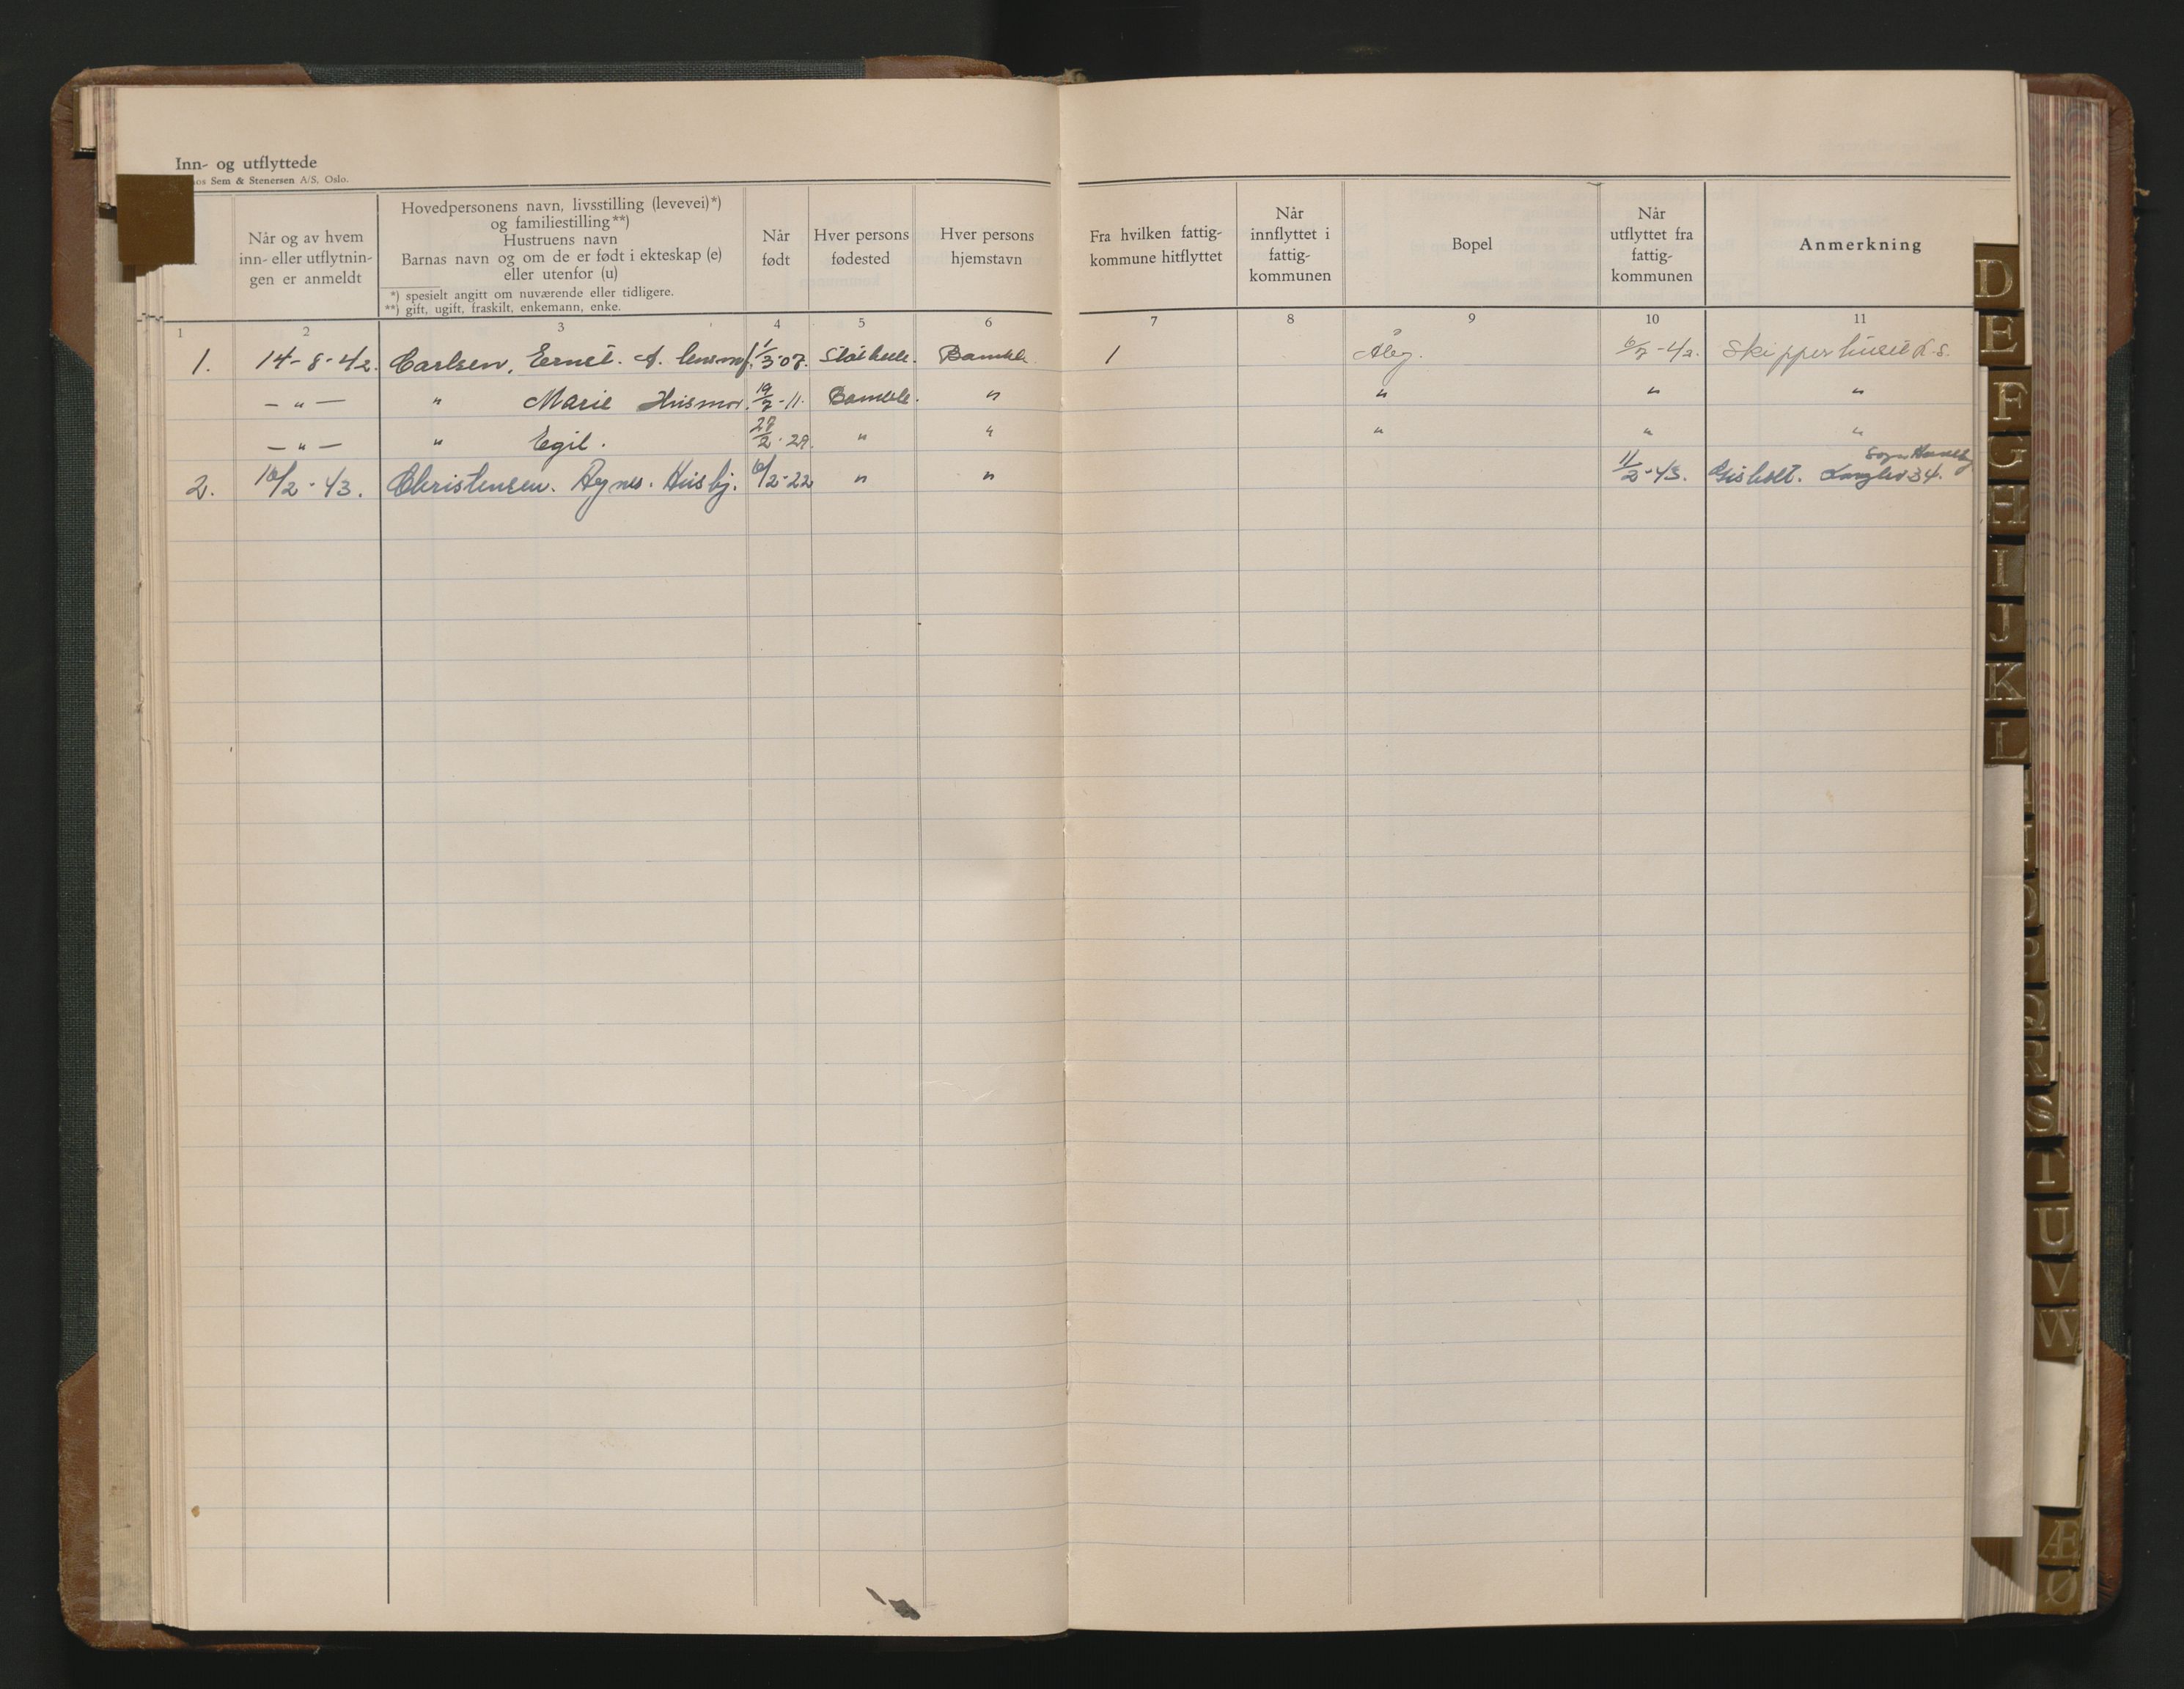 Inn- og utflyttede
Sem & Stenersen A/S, Oslo.
Når og av hvem
inn- eller utflytnin-
gen er anmeldt
Hovedpersonens navn, livsstilling (levevei)*)
og familiestilling**)
Hustruens navn
Barnas navn og om de er født i ekteskap (e)
eller utenfor (u)
*) spesielt angitt om nuværende eller tidligere.
**) gift, ugift, fraskilt, enkemann, enke.
Når
født
Hver persons
fødested
Hver persons
hjemstavn
Fra hvilken fattig-
kommune hitflyttet
Når
innflyttet i
fattig-
kommunen
Bopel
Når
utflyttet fra
fattig-
kommunen
Anmerkning
1 2 3 4 5 6 7 8 9 10 11
1. 14-8-42. Carlsen, Ernst. A. 1/3-07. Stathelle. Bamble / Åby. 6/7-42. Skipperhuset L-s.
- " - " Marie Husmor. 19/7-11. Bamble. " " " "
- " - " Egil. 27/2-29. " " " " "
2. 16/2-43. Christensen. Agnes. Hushj. 6/2-22 " " 11/2-43. Gisholt. 34.
D
E
F
G
H
I
J
K
L
Q
R
S
T
U
V
W
Æ
Ø